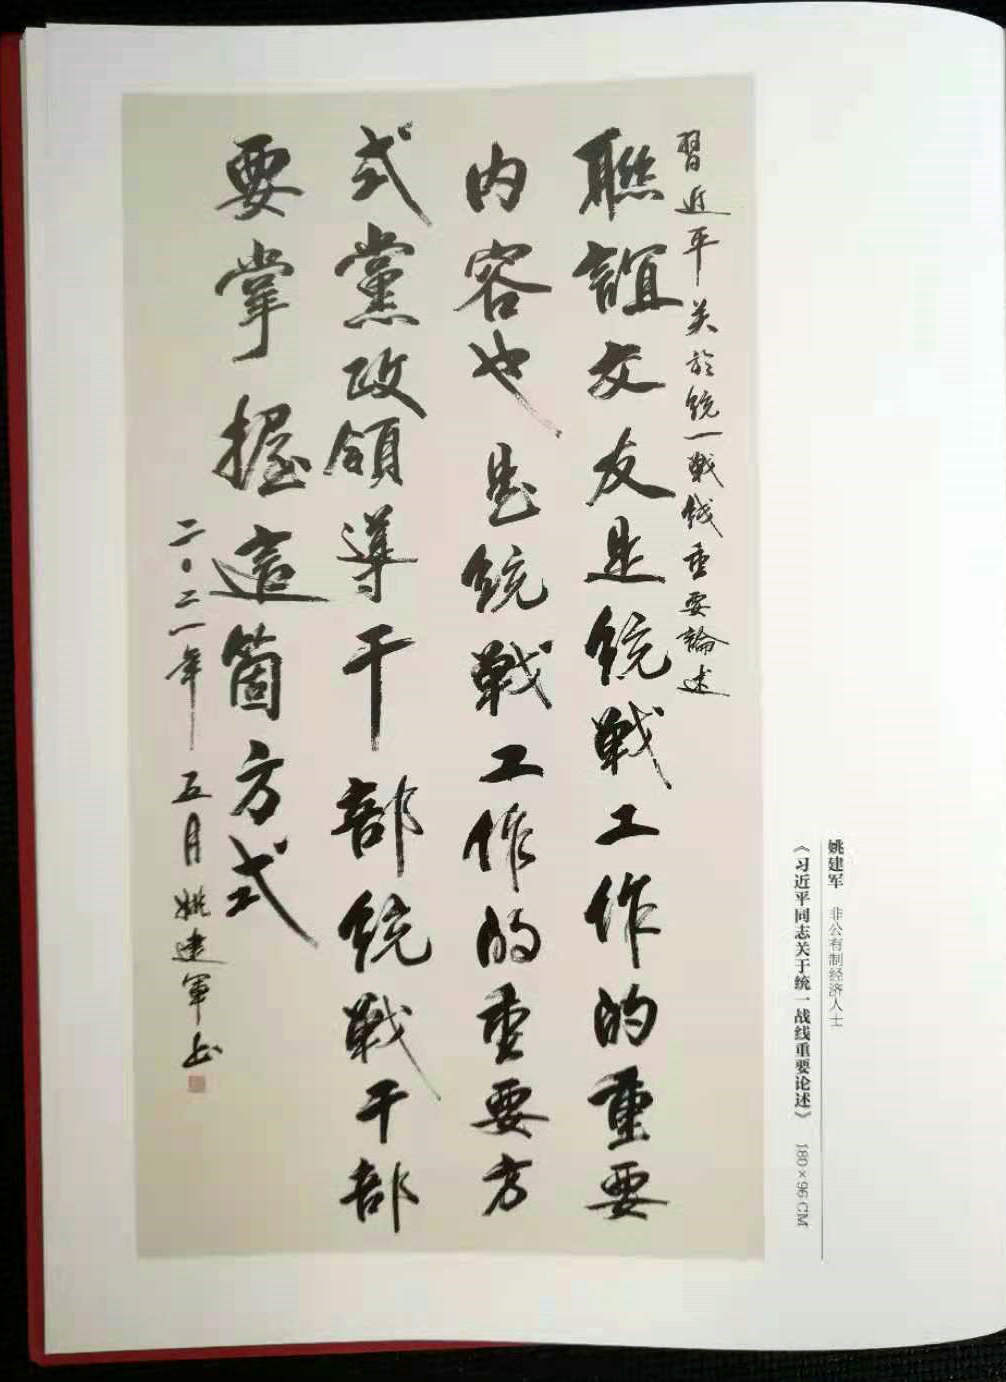 習近平关於統一戦线重要論述
聯誼交友是統戦工作的重要
内容也是統戦工作的重要方
式黨政領導干部統戦干部
要掌握這箇方式
二〇二一年五月姚建軍书
姚建军 非公有制经济人士
《习近平同志关于统一战线重要论述》 180×96 CM